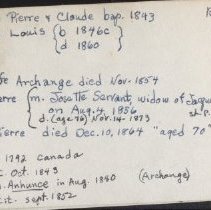 Pierre & Claude bap. 1843
Louis { b 1846c
d 1860
Archange died Nov. 1854
m. Josette Servant, widow of Jacques
on Aug. 4, 1856
d. (age 76) Nov. 14 - 1873
died Dec. 10, 1864 "aged 70"
1792 Canada
Oct. 1843
m. Annunce in Aug. 1840 (Archange)
cit. Sept. 1852